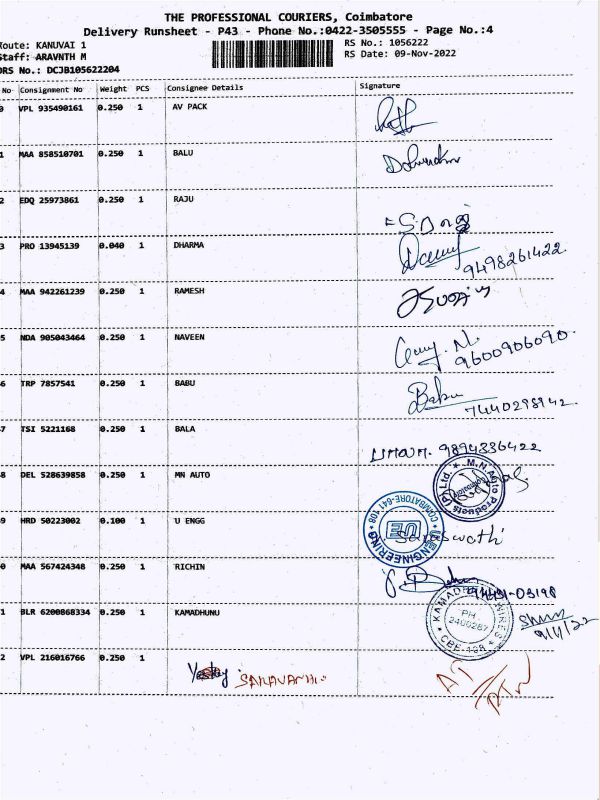 THE PROFESSIONAL COURIERS, Coimbatore
Delivery Runsheet - P43 - Phone No.:0422-3505555 - Page No.:4
Route: KANUVAI 1 RS No.: 1056222
Staff: ARAVNTH M RS Date: 09-Nov-2022
DRS No.: DCJB105622204
No Consignment No Weight PCS Consignee Details Signature
0 VPL 935490161 0.250 1 AV PACK
1 MAA 858510701 0.250 1 BALU
2 EDQ 25973861 0.250 1 RAJU
3 PRO 13945139 0.040 1 DHARMA
9498261422
4 MAA 942261239 0.250 1 RAMESH
5 NDA 905043464 0.250 1 NAVEEN
9600906090
6 TRP 7857541 0.250 1 BABU Babu
7440298942
7 TSI 5221168 0.250 1 BALA
9894336422
8 DEL 528639858 0.250 1 MN AUTO
M.N.Auto Products (P) Ltd.
9 HRD 50223002 0.100 1 U ENGG
U ENGINEERING COIMBATORE-641 108
UE
Saraswathi
0 MAA 567424348 0.250 1 RICHIN
1 BLR 6200868334 0.250 1 KAMADHUNU
KAMADHENU WIRES
PH: 2400287
CBE-108
9/11/22
2 VPL 216016766 0.250 1